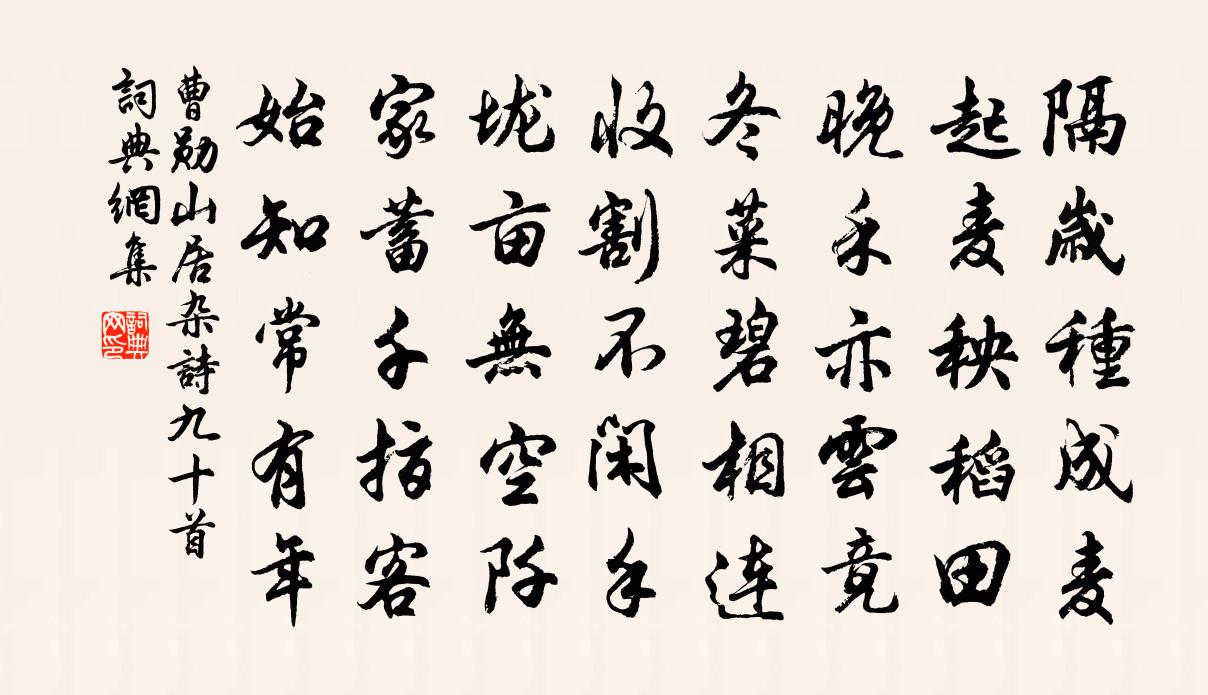 隔歳種成麦
起麦秧稻田
晚禾亦雲竟
冬菜碧相連
收割不閑手
垅亩無空阡
家蓄千指客
始知常有年
曹勛山居杂詩九十首
詞典網集
詞典网印